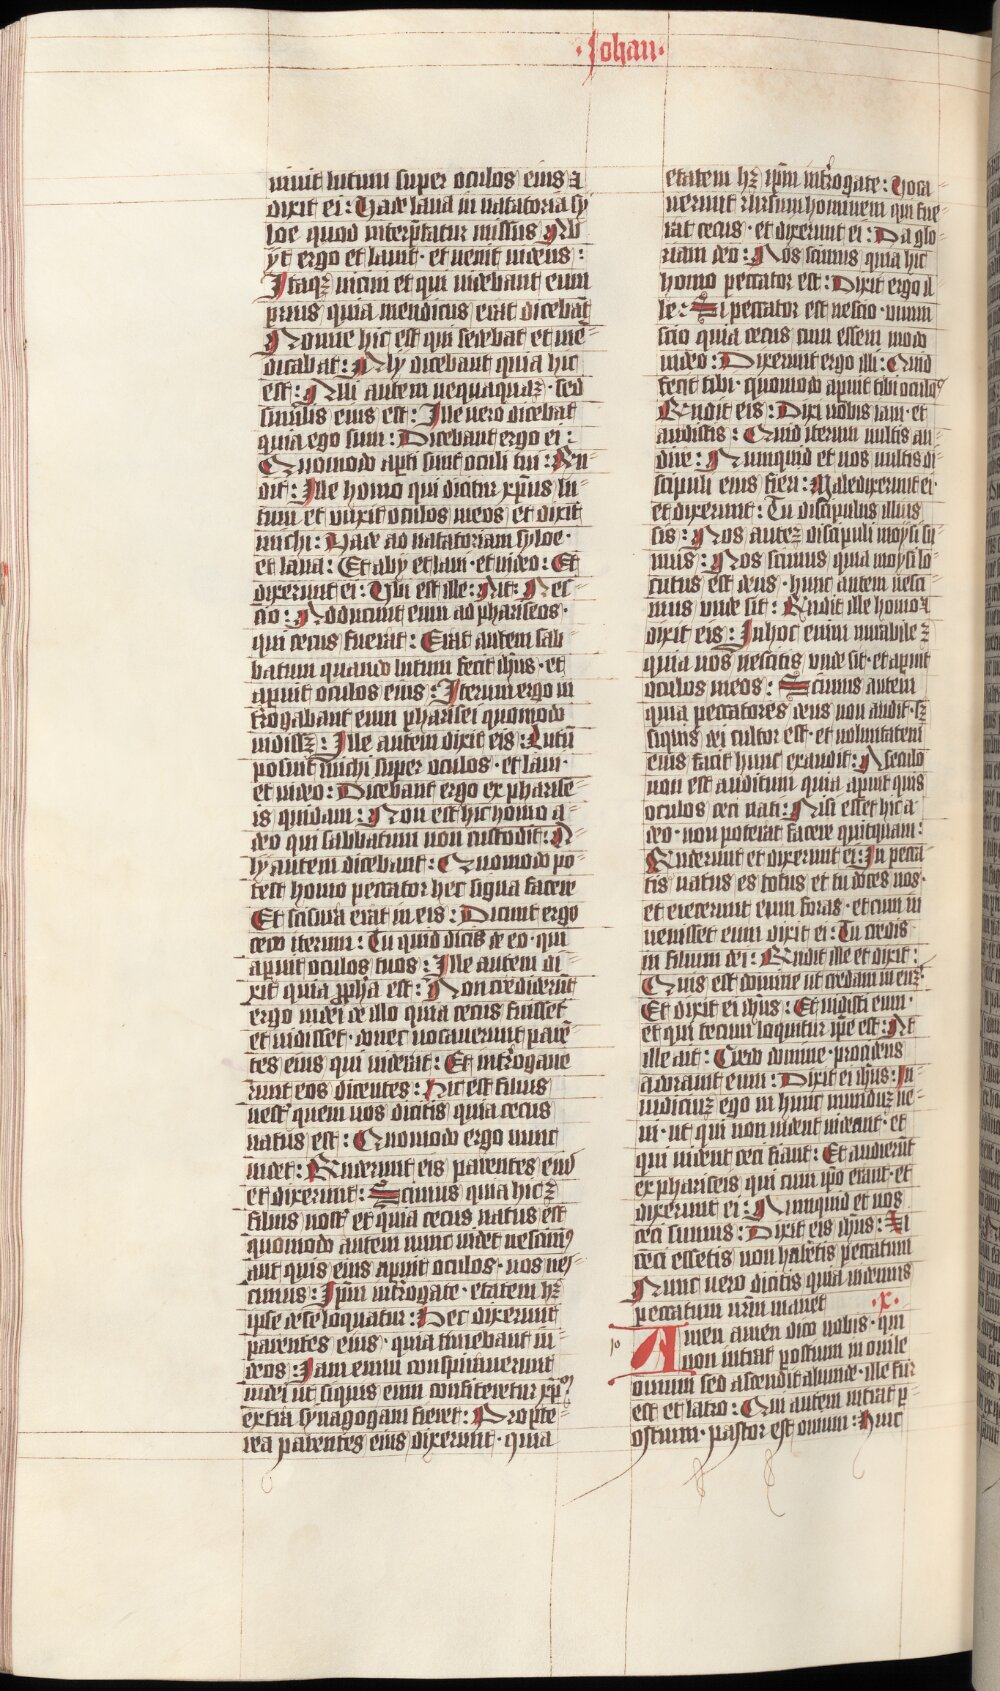 ·Johan·
uniit lutum super oculos eius ⁊
dixit ei: Vade laua in natatoria sy
loe quod interp̄tatur missus Abi
yt ergo et lauit · et uenit uidens :
Itaqꝫ uicini et qui uidebant eum
prius quia mendicus erat dicebāt
Nonne hic est qui sedebat et mē
dicabat: Aly dicebant quia hic
est: Alii autem nequaquaꝫ · sed
similis eius est: Ille vero dicebat
quia ego sum: Dicebant ergo ei :
Quomodo apti sunt oculi tui: Rn̄
dit: Ille homo qui dicitur xp̄us lu
tum et vnxit oculos meos et dixit
michi: Vade ad natatoriam syloe·
et laua: Et abij et laui · et uideo: Et
dixerunt ei: Vbi est ille: Ait: Nes
cio: Adducunt eum ad phariseos·
qui cecus fuerat: Erat autem sab
batum quando lutum fecit ih̄us · et
apuit oculos eius: Iterum ergo in
trogabant eum pharisei quomodo
uidissꝫ: Ille autem dixit eis: Lutū
posuit michi super oculos · et laui·
et uideo: Dicebant ergo ex pharise
is quidam: Non est hic homo a
deo qui sabbatum non custodit: A
ly autem dicebant: Quomodo po
test homo peccator hec signa facere
Et scisura erat in eis: Dicunt ergo
ceco iterum: Tu quid dicis de eo · qui
apuit oculos tuos: Ille autem di
xit quia ꝓpha est: Non crediderūt
ergo iudei de illo quia cecus fuisset
et uidisset · donec uocauerunt parē
tes eius qui uiderat: Et introgaue
runt eos dicentes: Hic est filius
uest̄ quem uos dicitis quia cecus
natus est: Quomodo ergo nunc
uidet: Rn̄derunt eis parentes eius
et dixerunt: Scimus quia hic ꝫ
filius nost̄ et quia cecus natus est
quomodo autem nunc uidet nescimꝰ
aut quis eius apuit oculos · nos nes
cimus: Ip̄m introgate · etatem hꝫ
ipse de se loquatur: Hec dixerunt
parentes eius · quia timebant iu
deos: Iam enim conspirauerunt
iudei ut siquis eum confiteretur xp̄m
extra synagogam fieret: Propte
rea parentes eius dixerunt · quia
etatem hꝫ ip̄m introgate: Voca
uerunt rursum hominem qui fue
rat cecus · et dixerunt ei: Da glo
riam deo: Nos scimus quia hic
homo peccator est: Dixit ergo il
le: Si peccator est nescio · vnum
scio quia cecus cum essem modo
uideo: Dixerunt ergo illi: Quid
fecit tibi · quomodo apuit tibi oculos
Rn̄dit eis: Dixi uobis iam · et
audistis: Quid iterum uultis au
dire: Nunquid et uos uultis di
scipuli eius fieri: Maledixerunt ei·
et dixerunt: Tu discipulus illius
sis: Nos auteꝫ discipuli moysi su
mus: Nos scimus quia moysi lo
cutus est deus · hunc autem nesci
mus unde sit: Rn̄dit ille homo ⁊
dixit eis: In hoc enim mirabile ꝫ
quia uos nescitis vnde sit · et apuit
oculos meos: Scimus autem
quia peccatores deus non audit · sꝫ
siquis dei cultor est · et uoluntatem
eius facit hunc exaudit: A seculo
non est auditum quia apuit quis
oculos ceci nati: Nisi esset hic a
deo · non poterat facere quitquam:
Rn̄derunt et dixerunt ei: In pecca
tis natus es totus et tu doces nos·
et eiecerunt eum foras · et cum in
uenisset eum dixit ei: Tu credis
in filium dei: Rn̄dit ille et dixit:
Quis est domine ut credam in euꝫ
Et dixit ei ih̄us: Et uidisti eum·
et qui tecum loquitur ip̄e est: At
ille ait: Credo domine · procidens
adorauit eum: Dixit ei ih̄us: In
iudiciuꝫ ego in hunc munduꝫ ue
ni · ut qui non uident uideant · et
qui uident ceci fiant: Et audierūt
ex phariseis qui cum ip̄o erant · et
dixerunt ei: Nunquid et nos
ceci sumus: Dixit eis ih̄us: Si
ceci essetis non habētis peccatum
Nunc uero dicitis quia uidemus
peccatum ur̄m manet ·x·
10 Amen amen dico uobis · qui
non intrat postium in ouile
ouium sed ascendit aliunde · ille fur
est et latro: Qui autem intrat p
ostium · pastor est ouium: Huic